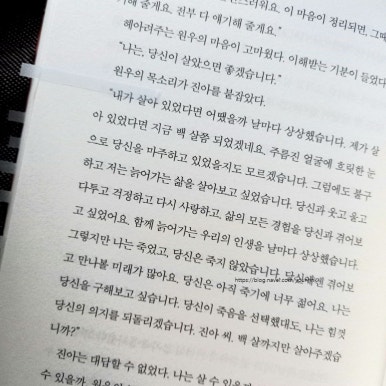 부스러워요. 이 마음이 정리되면, 그때
해 줄게요. 전부 다 얘기해 줄게요."
헤아려주는 원우의 마음이 고마웠다. 이해받는 기분이 들었다
"나는, 당신이 살았으면 좋겠습니다."
원우의 목소리가 진아를 붙잡았다.
"내가 살아 있었다면 어땠을까 날마다 상상했습니다. 제가 살
아 있었다면 지금 백 살쯤 되었겠네요. 주름진 얼굴에 흐릿한 눈
으로 당신을 마주하고 있었을지도 모르겠습니다. 그럼에도 불구
하고 저는 늙어가는 삶을 살아보고 싶었습니다. 당신과 웃고 울고
다투고 걱정하고 다시 사랑하고, 삶의 모든 경험을 당신과 겪어보
고 싶었어요. 함께 늙어가는 우리의 인생을 날마다 상상했습니다.
그렇지만 나는 죽었고, 당신은 죽지 않았습니다. 당신에겐 겪어보
https://blog.naver.com/
고 만나볼 미래가 많아요. 당신은 아직 죽기에 너무 젊어요. 나는
당신을 구해보고 싶습니다. 당신이 죽음을 선택했대도, 나는 힘껏
당신의 의지를 되돌리겠습니다. 진아 씨. 백 살까지만 살아주겠습
니까?"
진아는 대답할 수 없었다. 나는 살 수 있을까
수 있을까. 원우